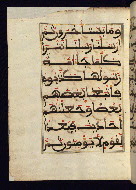 وما يستخرون ثم
ارسلنا رسلنا تترا
كلما جا امة
رسولها كذبوه
فاتبعنا بعضهم
بعضا وجعلنهم
احاديث فبعدا
لقوم لا يومنون